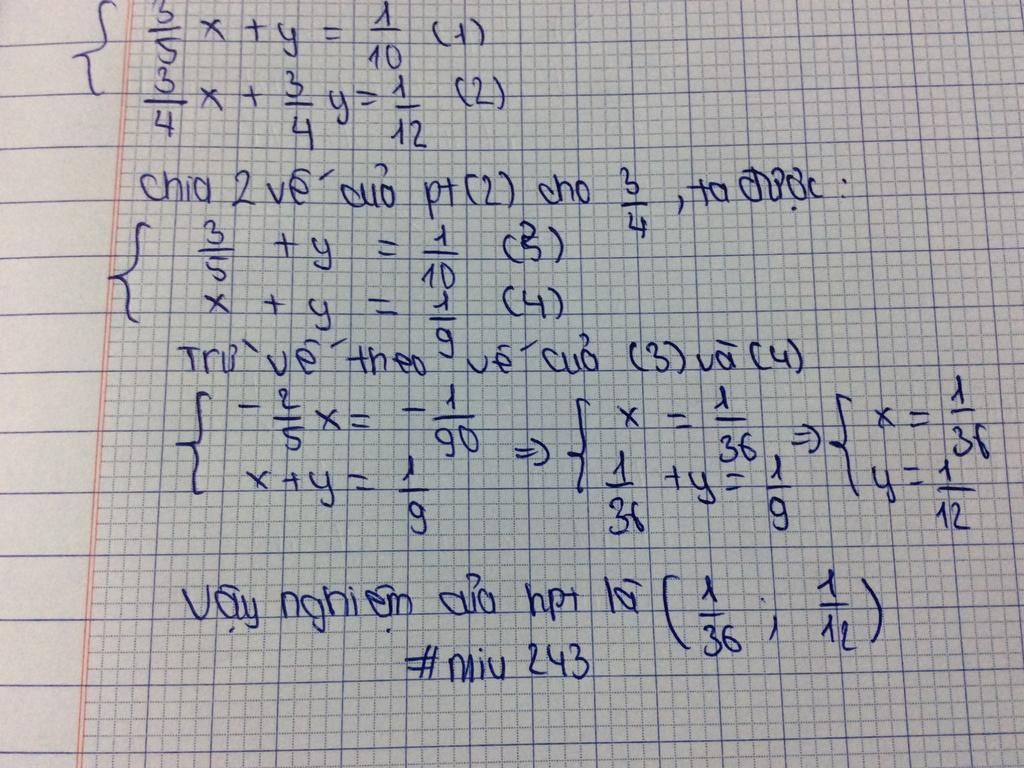 { 3/5 x + y = 1/10 (1)
3/4 x + 3/4 y = 1/12 (2)
Chia 2 vế của pt(2) cho 3/4, ta được:
{ 3/5 + y = 1/10 (3)
x + y = 1/9 (4)
Trừ vế theo vế của (3) và (4)
{ -2/5 x = -1/90 ⇒ { x = 1/36 ⇒ { x = 1/36
x + y = 1/9 1/36 + y = 1/9 y = 1/12
Vậy nghiệm của hpt là (1/36; 1/12)
#miu 243